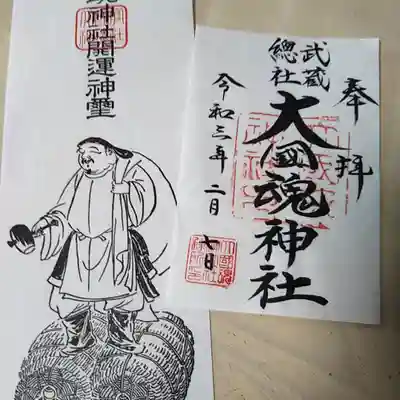 魂神社開運神璽
奉拝
武蔵
總社
大國魂神社
令和三年二月
七日